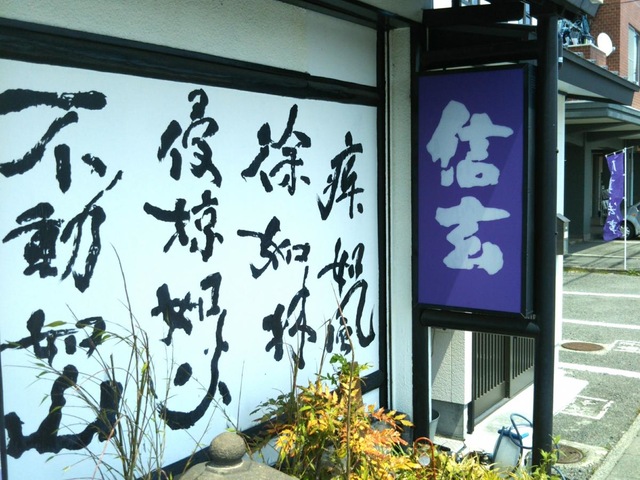 疾如風
徐如林
侵掠如火
不動如山
信玄